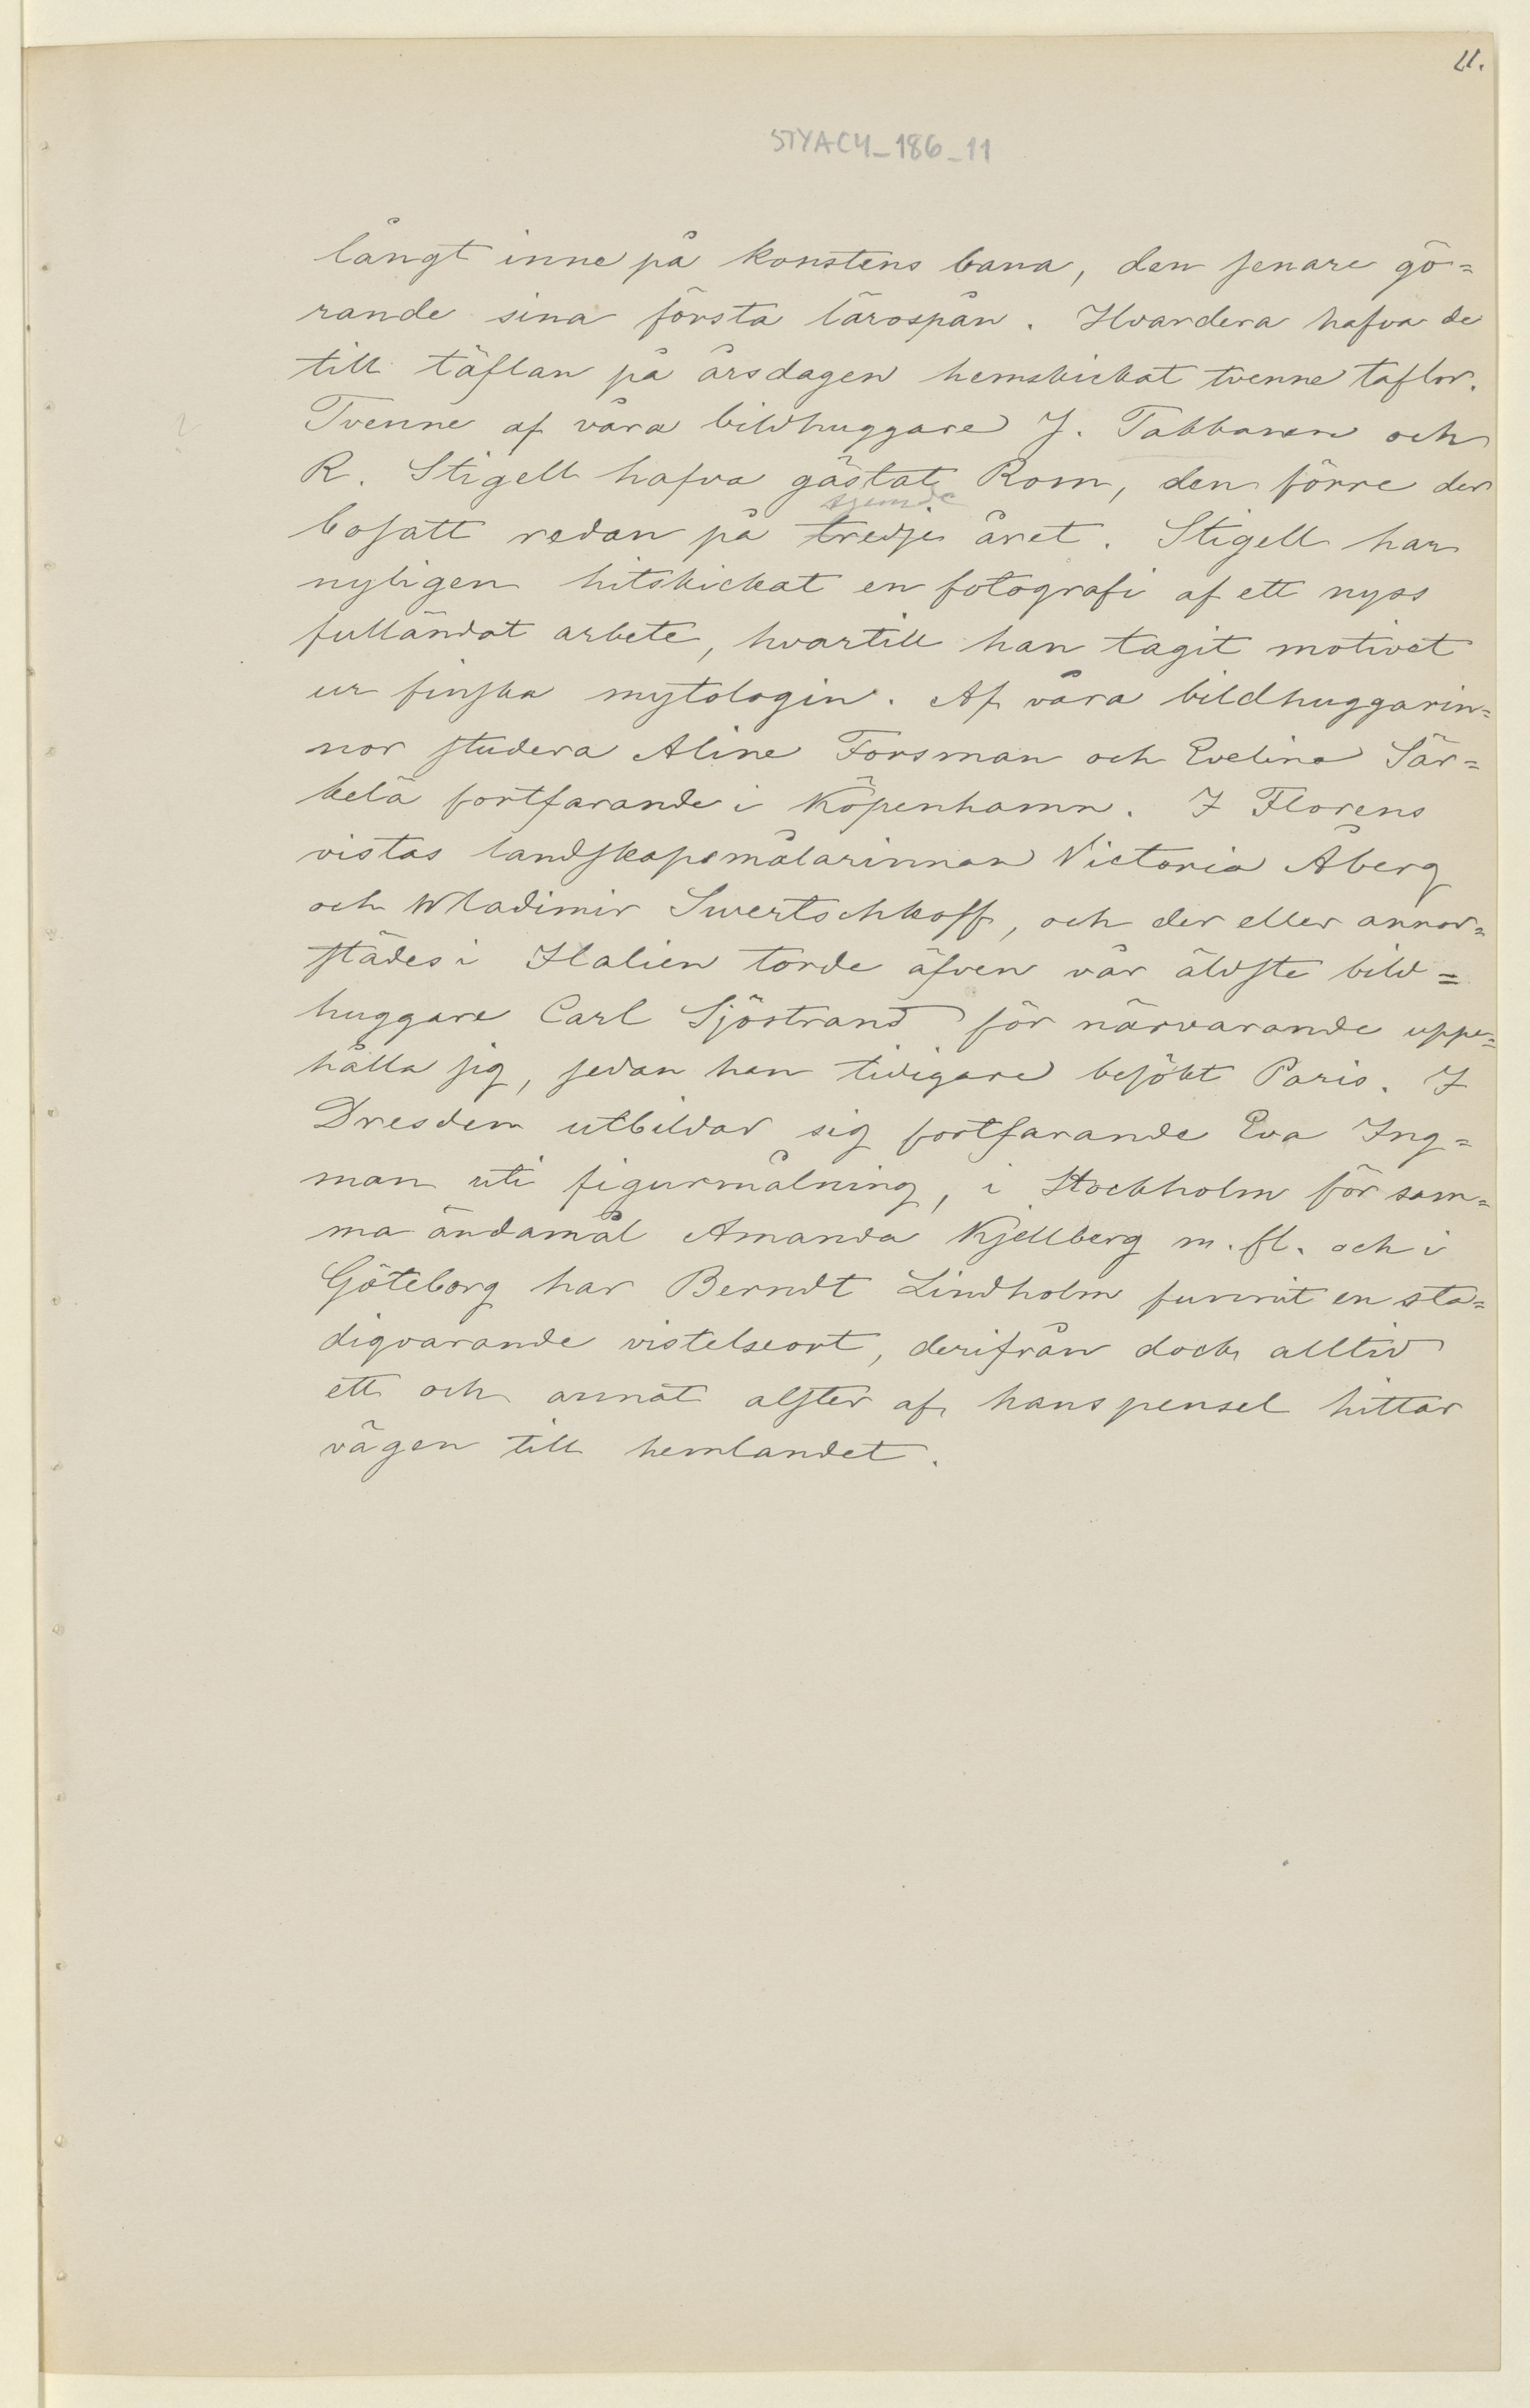 11.
STYACY_186_11
långt inne på konstens bana, den senare gö=
rande sina första lärospån. Hvardera hafva de
till täflan på årsdagen hemskickat tvenne taflor.
Tvenne af våra bildhuggare J. Takkanen och
R. Stigell hafva gästat Rom, den förre der
sjunde
bosatt redan på tredje året. Stigell har
nyligen hitskickat en fotografi af ett nyss
fulländat arbete, hvartill han tagit motivet
ur finska mytologin. Af våra bildhuggarin=
nor studera Aline Forsman och Evelina Sär=
kelä fortfarande i Köpenhamn. I Florens
vistas landskapsmålarinnan Victoria Åberg
och Wladimir Swertschkoff, och der eller annor=
städes i Italien torde äfven vår äldste bild=
huggare Carl Sjöstrand för närvarande uppe=
hålla sig, sedan han tidigare besökt Paris. I
Dresden utbildar sig fortfarande Eva Ing=
man uti figurmålning, i Stockholm för sam=
ma ändamål Amanda Kjellberg m. fl. och i
Göteborg har Berndt Lindholm funnit en sta=
digvarande vistelseort, derifrån dock alltid
ett och annat alster af hans pensel hittar
vägen till hemlandet.